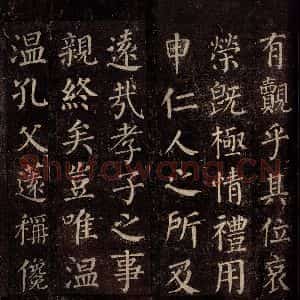 有覿乎其位哀
榮既極情禮用
申仁人之所及
遠哉孝子之事
親終矣豈唯温
温孔父遠稱儳
Shufawang.CN